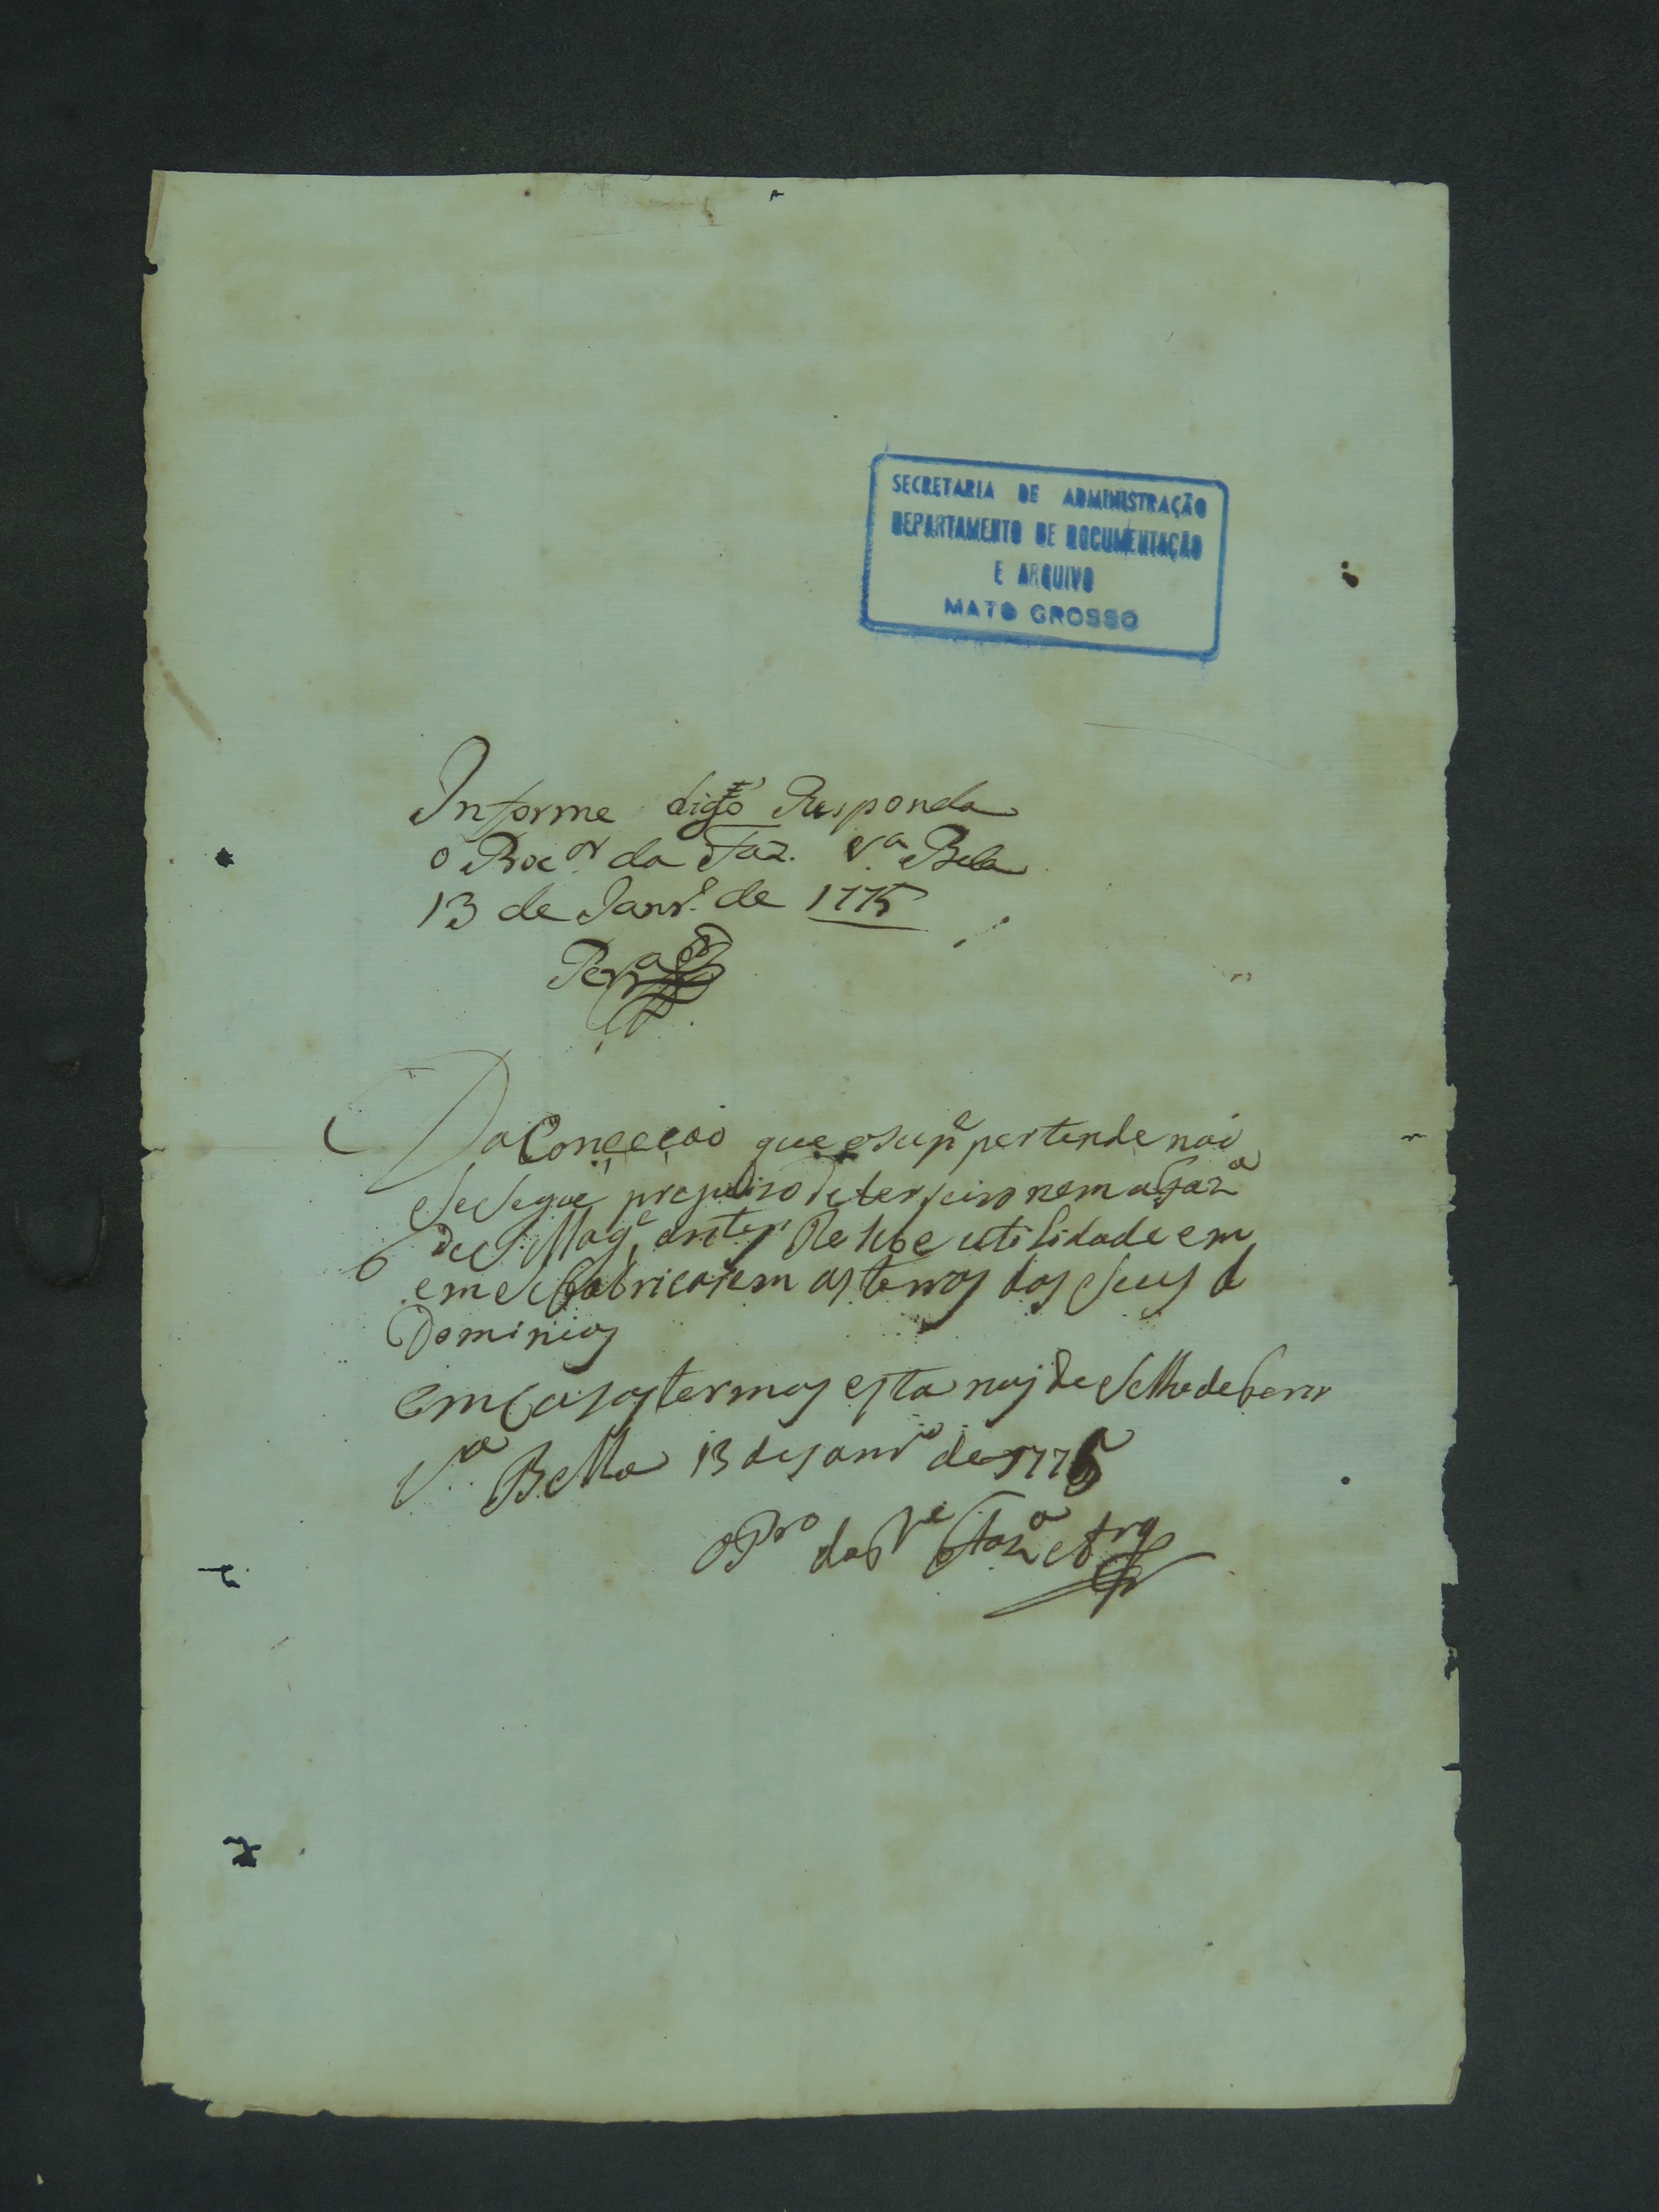 SECRETARIA DE ADMINISTRAÇÃO
DEPARTAMENTO DE DOCUMENTAÇÃO
E ARQUIVO
MATO GROSSO
Informe digo Responda
o Proc.or da Faz. V.a Bela
13 de Janr.o de 1775
Per.a
Da Conceçaõ que o sup.e pertende naõ
se segue prejuizo de terseiro nem a Faz.a
de S. Mag.e, antes Resebe utilidade em
em se fabricarem as terras dos seus d
Dominios
em cujos termos esta nos de se lhe deferir
V.a Bella 13 de Janr.o de 1775
o P.ro da R.e Faz.a